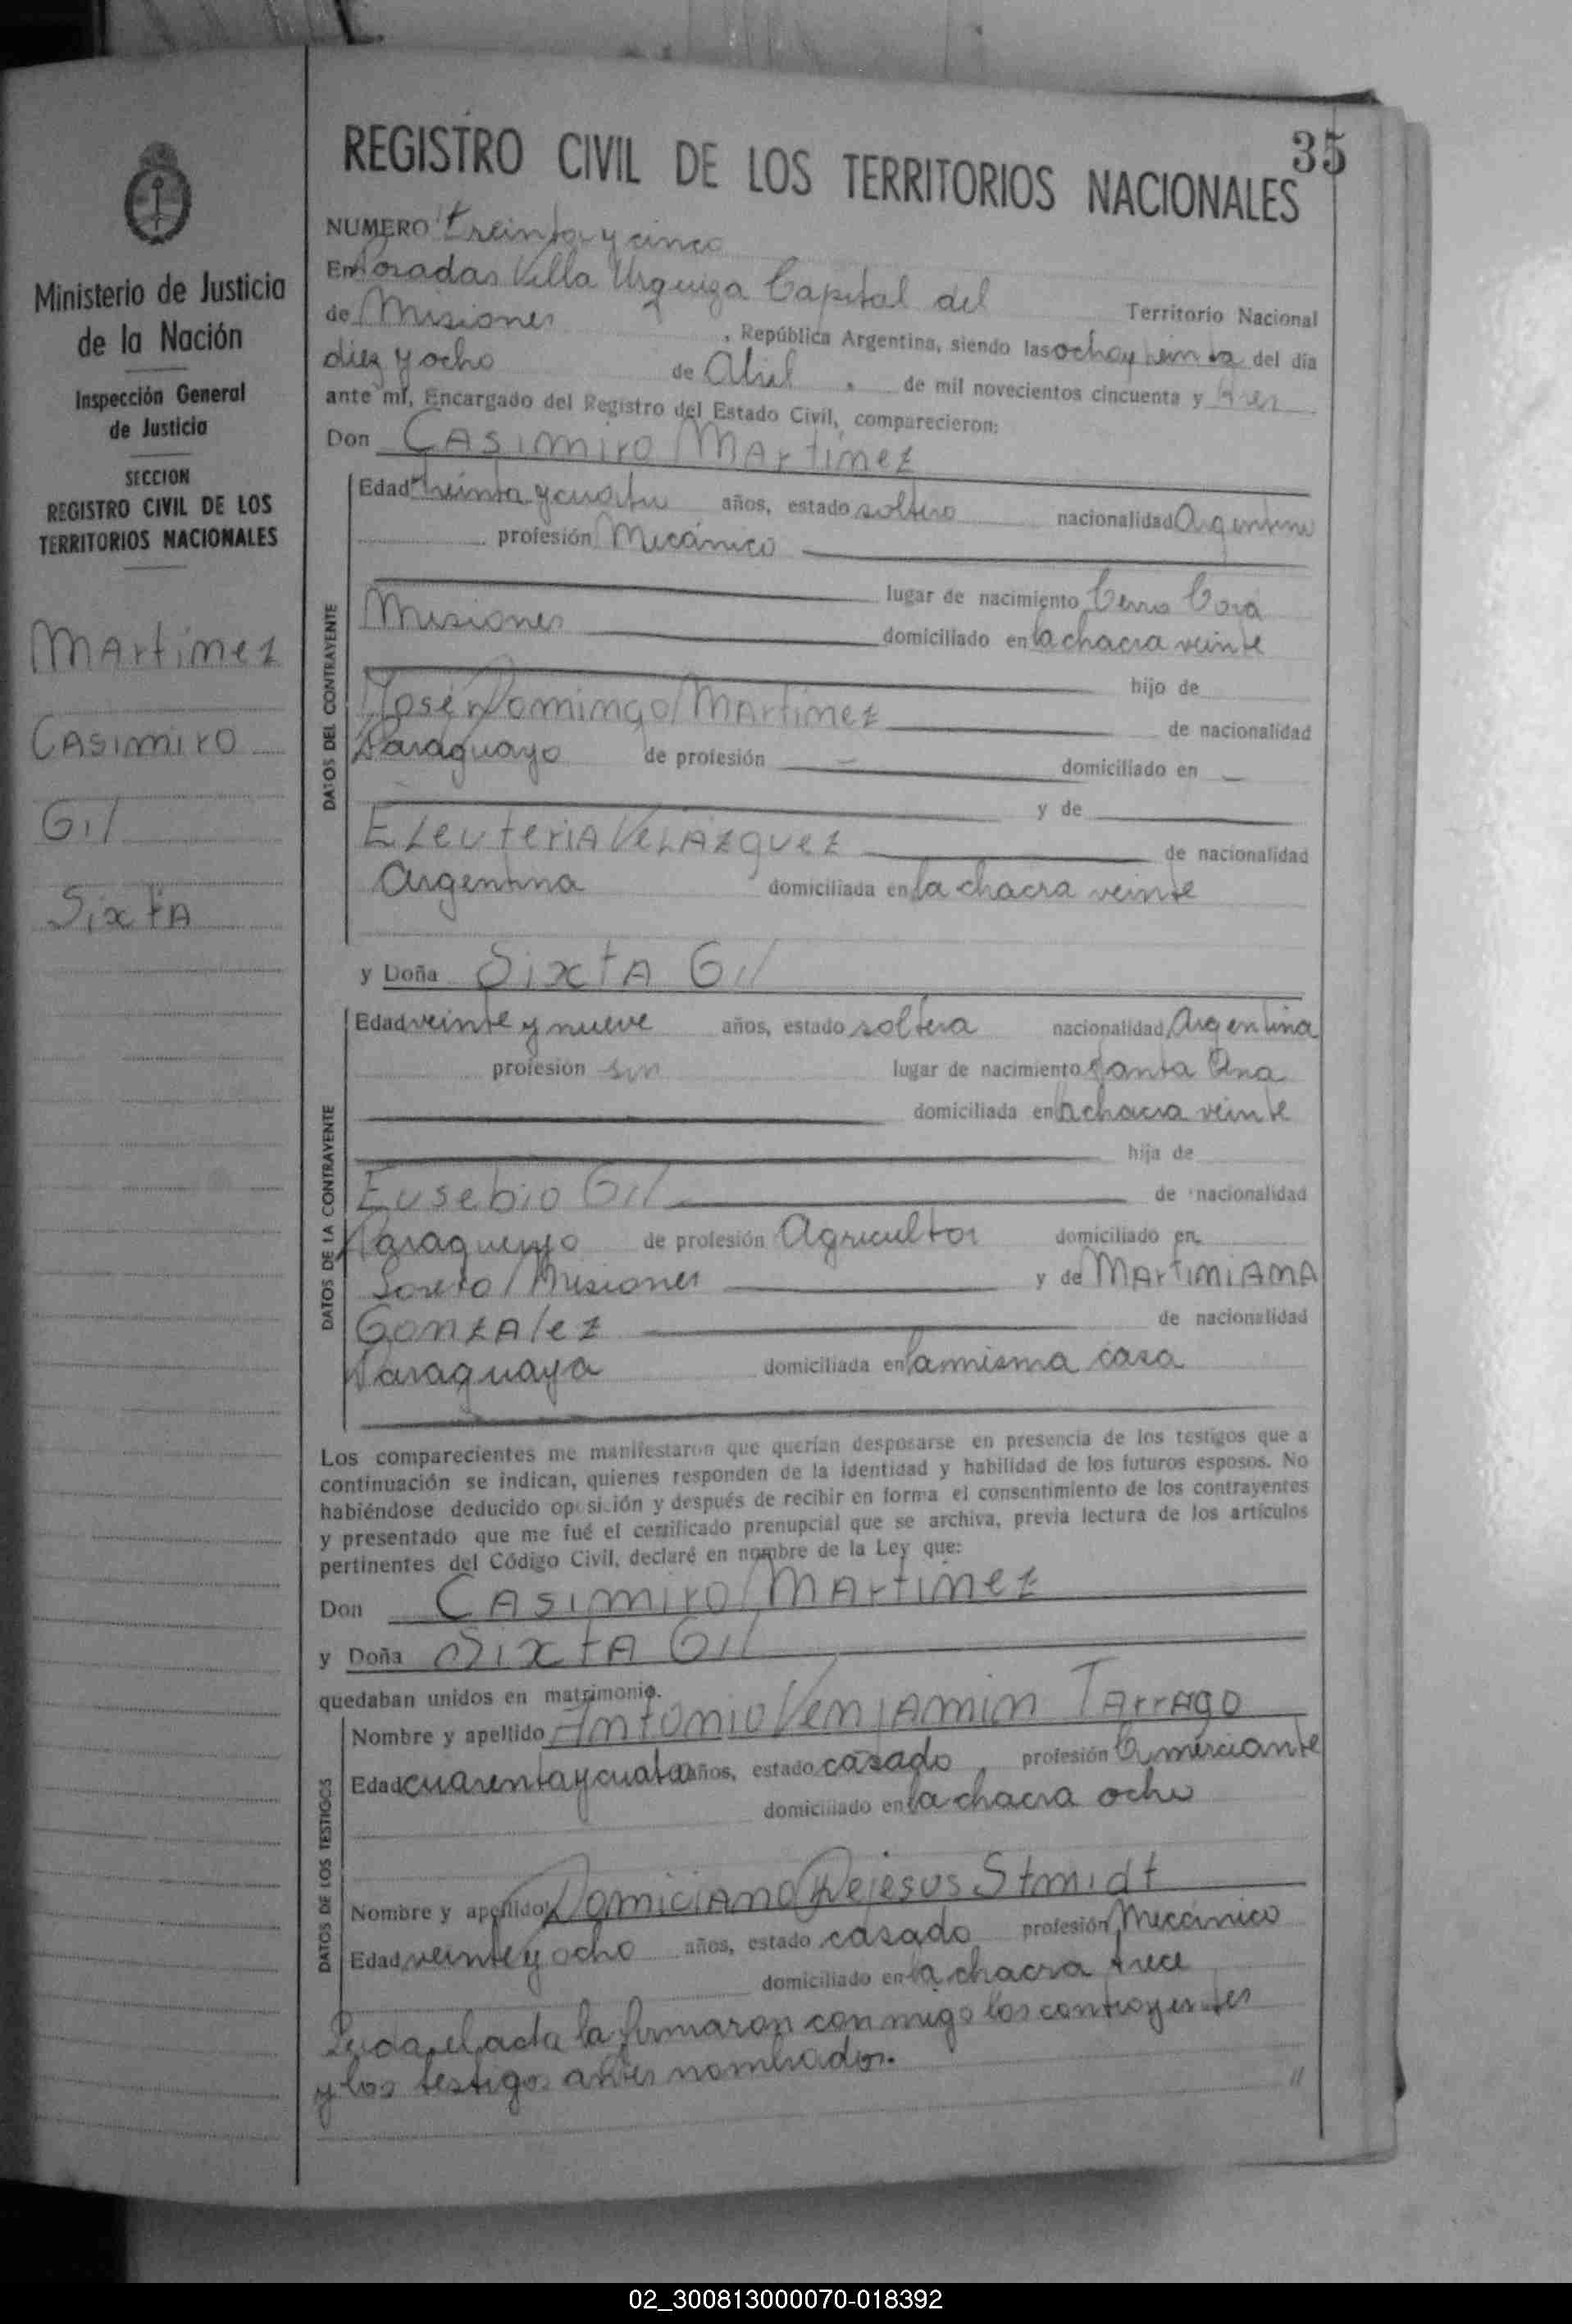 35
REGISTRO CIVIL DE LOS TERRITORIOS NACIONALES
NUMERO treinta y cinco
En Posadas Villa Urquiza Capital del Territorio Nacional
de Misiones, República Argentina, siendo las ocho y treinta del día
diez y ocho de Abril, de mil novecientos cincuenta y tres
ante mí, Encargado del Registro del Estado Civil, comparecieron:
Don CASIMIRO MARTINEZ
DATOS DEL CONTRAYENTE
Edad treinta y cuatro años, estado soltero nacionalidad Argentino
profesión Mecánico
lugar de nacimiento Cerro Corá
Misiones domiciliado en la chacra veinte
hijo de
José Domingo Martinez de nacionalidad
Paraguayo de profesión — domiciliado en —
y de
ELEUTERIA VELAZQUEZ de nacionalidad
Argentina domiciliada en la chacra veinte
y Doña SIXTA Gil
DATOS DE LA CONTRAYENTE
Edad veinte y nueve años, estado soltera nacionalidad Argentina
profesión sin lugar de nacimiento Santa Ana
domiciliada en la chacra veinte
hija de
Eusebio Gil de nacionalidad
Paraguayo de profesión Agricultor domiciliado en
Loreto Misiones y de MARTINIANA
GONZALEZ de nacionalidad
Paraguaya domiciliada en la misma casa
Los comparecientes me manifestaron que querían desposarse en presencia de los testigos que a
continuación se indican, quienes responden de la identidad y habilidad de los futuros esposos. No
habiéndose deducido oposición y después de recibir en forma el consentimiento de los contrayentes
y presentado que me fué el certificado prenupcial que se archiva, previa lectura de los artículos
pertinentes del Código Civil, declaré en nombre de la Ley que:
Don CASIMIRO MARTINEZ
y Doña SIXTA Gil
quedaban unidos en matrimonio.
DATOS DE LOS TESTIGOS
Nombre y apellido Antonio Venjamin TARRAGO
Edad cuarenta y cuatro años, estado casado profesión Comerciante
domiciliado en la chacra ocho
Nombre y apellido Domiciano Dejesus Stmidt
Edad veinte y ocho años, estado casado profesión Mecánico
domiciliado en la chacra trece
Leida el acta la firmaron conmigo los contrayentes
y los testigos antes nombrados.
Ministerio de Justicia
de la Nación
Inspección General
de Justicia
SECCION
REGISTRO CIVIL DE LOS
TERRITORIOS NACIONALES
MARTINEZ
CASIMIRO
Gil
SIXTA
02_300813000070-018392